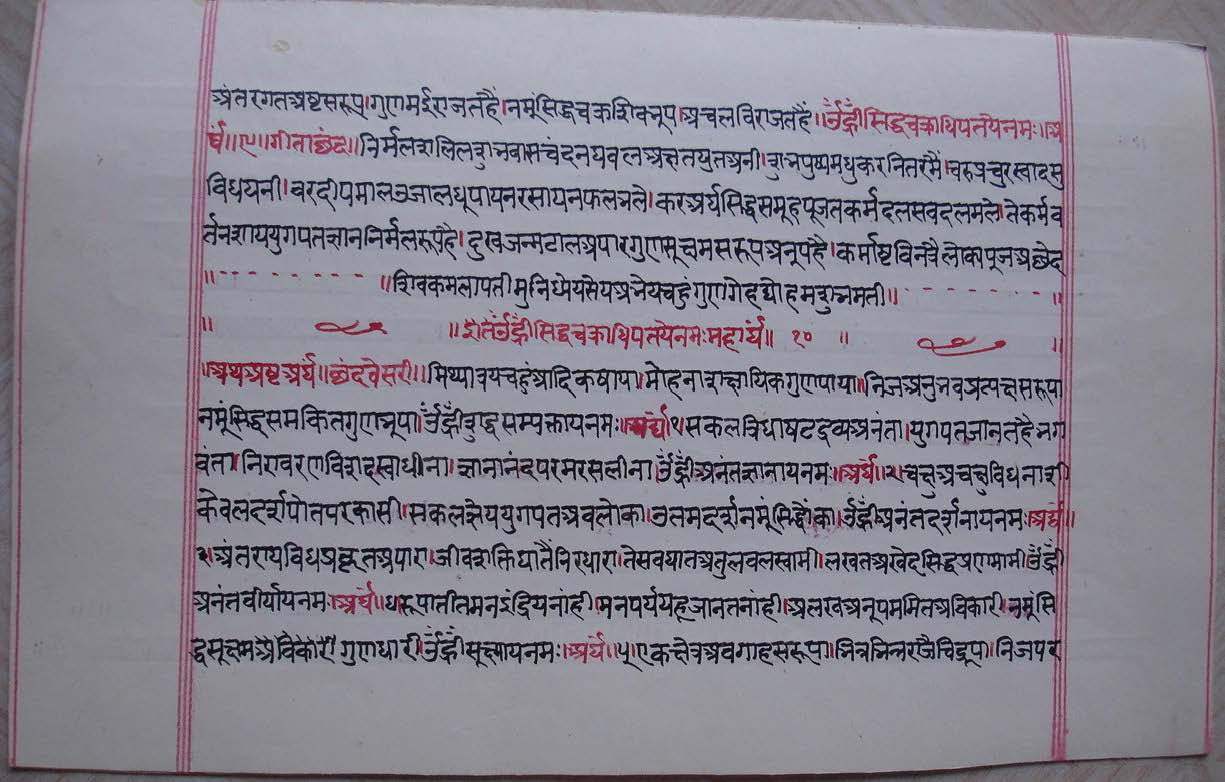 अंतरगतअष्टसरूप।गुणमईराजतहैं।नमूंसिद्धचक्रशिवभूप।अचलविराजतहैं।ॐह्रींसिद्धचक्राधिपतयेनमः।अ
र्घं॥९।गीताछंद॥निर्मलशलिलशुभवासचंदनधवलअक्षतयुतअनी।शुभपुष्पमधुकरनितरमैं।चरुप्रचुरस्वादसु
विधघनी।वरदीपमालउजालधूपायनरसायनफलभले।करअर्घसिद्धसमूहपूजतकर्मदलसवदलमले।तेकर्मव
र्तनशाययुगपतज्ञाननिर्मलरूपहै।दुखजन्मटालअपारगुणसूक्षमसरूपअनूपहै।कर्माष्टविनत्रैलोक्यपूजअछेद
॥शिवकमलापतीमुनिध्येयसेयअमेयचहुंगुणगेहद्योहमशुभमती॥
॥इतॐह्रींसिद्धचक्राधिपतयेनमःमहार्घं॥ १० ॥
॥अथअष्टअर्घ॥छंदचेसरी॥मिथ्यात्रयचहुंआदिकषाया।मोहनाशक्षायिकगुणपाया॥निजअनुभवप्रत्यक्षसरूपा
नमूंसिद्धसमकितगुणभूपा।ॐह्रींशुद्धसम्यक्तायनमः।अर्घं॥१सकलत्रिधाषटद्रव्यअनंता।युगपतजानतहैभग
वंता।निरावरणविशदस्वाधीना।ज्ञानानंदपरमरसलीना।ॐह्रींअनंतज्ञानायनमः।अर्घं॥२।चक्षुअचक्षुविधनाशी
केवलदर्शपोतपरकासी।सकलज्ञेययुगपतअवलोका।उतमदर्शनमूंसिद्धोंका।ॐह्रींअनंतदर्शनायनमः।अर्घं॥
३।अंतरायविधअष्टतअपारा।जीवशक्तिघातैंनिरधारा।तेसवघातअतुलवलस्वामी।लखतअखेदसिद्धप्रणमामी।ॐह्रीं
अनंतवीर्यायनमः।अर्घं॥४।रूपातीतमनइंद्रियनांही।मनपर्ययहूजानतनांही।अलखअनूपममितअविकारी।नमूंसि
द्धसूक्षमअविकारी।गुणधारी।ॐह्रींसूक्ष्मायनमः।अर्घं॥५।एकक्षेत्रअवगाहसरूपा।भिन्नभिन्नरजैचिद्रूपा।निजपर